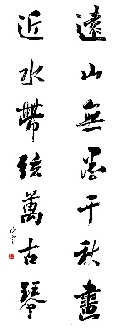 遠山無墨千秋畫
近水帶絃萬古琴